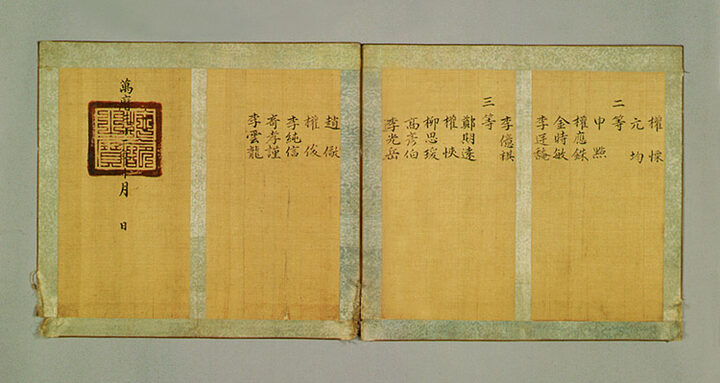 權慄
元均
二等
申點
權應銖
金時敏
李廷馣
李億祺
三等
鄭期遠
權悏
柳思瑗
高彦伯
李光岳
趙儆
權俊
李純信
奇孝謹
李雲龍
萬曆 十月 日